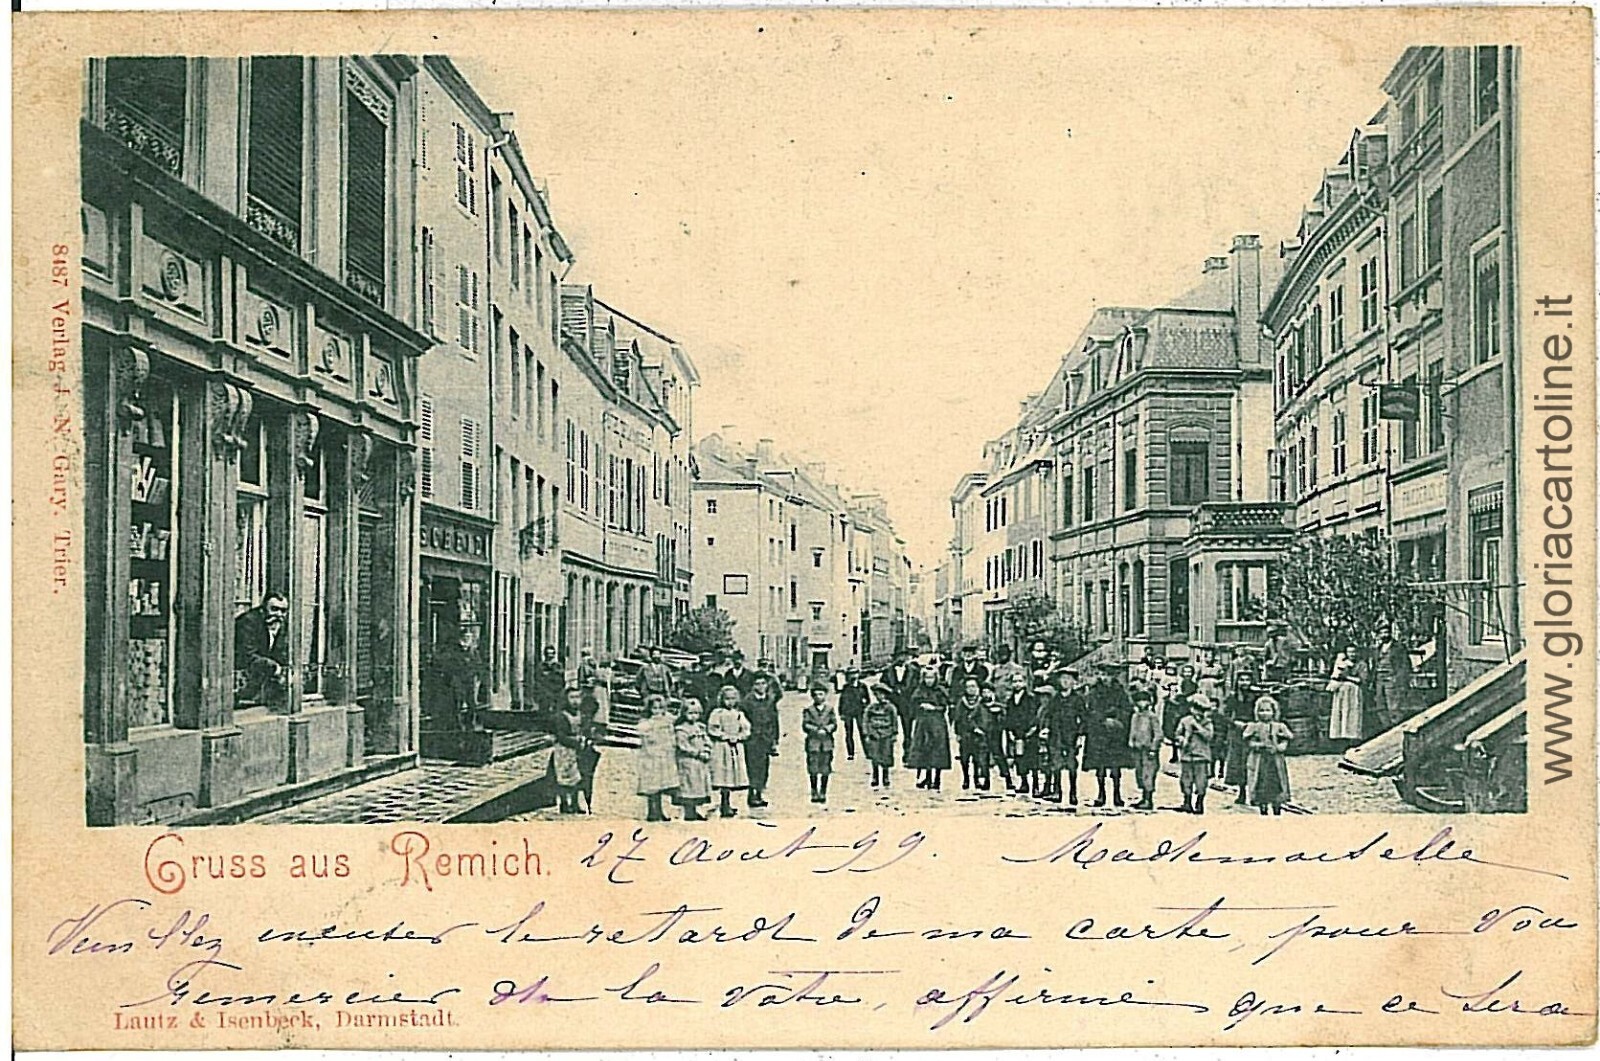 Gruss aus Remich. 27 Août 99. Mademoiselle
Veuillez excuser le retard de ma carte, pour vou
remercier de la vôtre, affirmé que ce sera
Lautz & Isenbeck, Darmstadt.
8487 Verlag J. N. Gary, Trier.
www.gloriacartoline.it